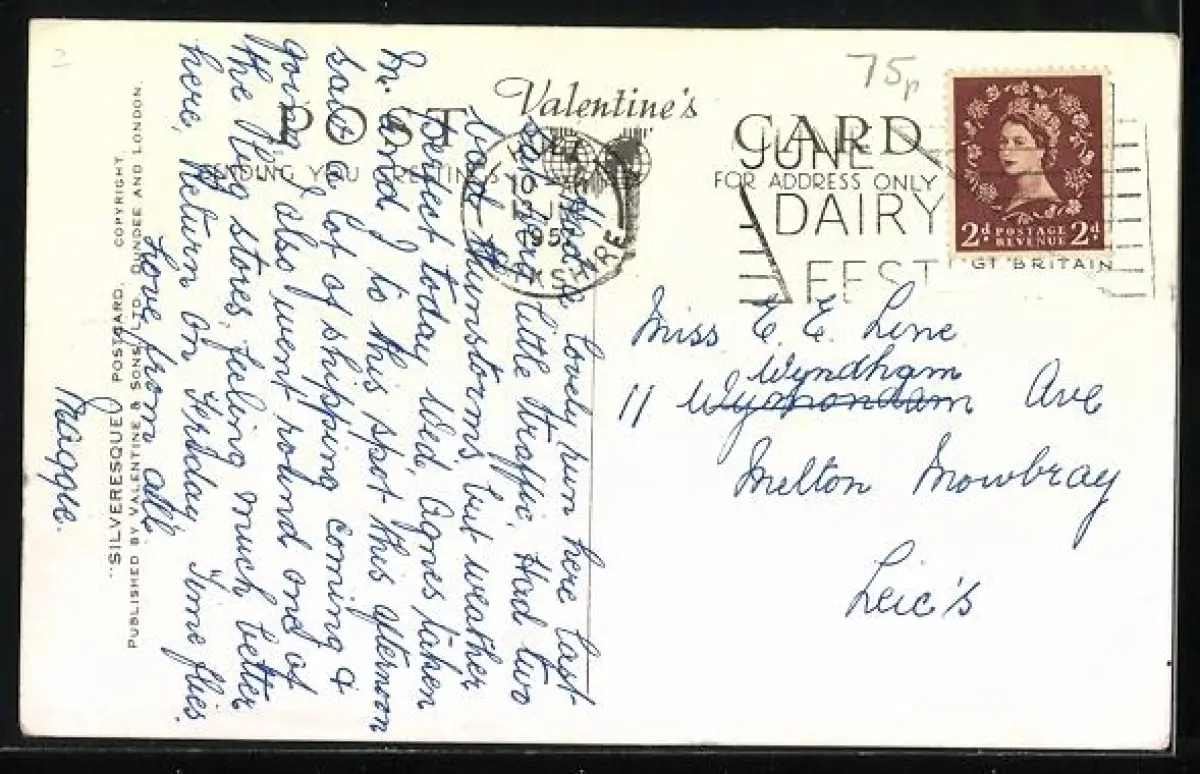 75p
Valentine's
POST CARD
SENDING YOU GREETINGS
FOR ADDRESS ONLY
JUNE
DAIRY
FEST
HULL
10
195
YORKSHIRE
2d POSTAGE REVENUE 2d
GT BRITAIN
Had a lovely run here last
Sat, very little traffic. Had two
bad thunstorms but weather
perfect today Wed. Agnes taken
M. and I to this spot this afternoon
saw a lot of shipping coming &
going I also went round one of
the Rug stores, feeling much better
here, Return on Friday Time flies.
Love from all
Maggie.
"SILVERESQUE" POSTCARD. COPYRIGHT.
PUBLISHED BY VALENTINE & SONS, LTD. DUNDEE AND LONDON.
Miss E. E. Line
Wyndham
11 Wymondam Ave
Melton Mowbray
Leic's